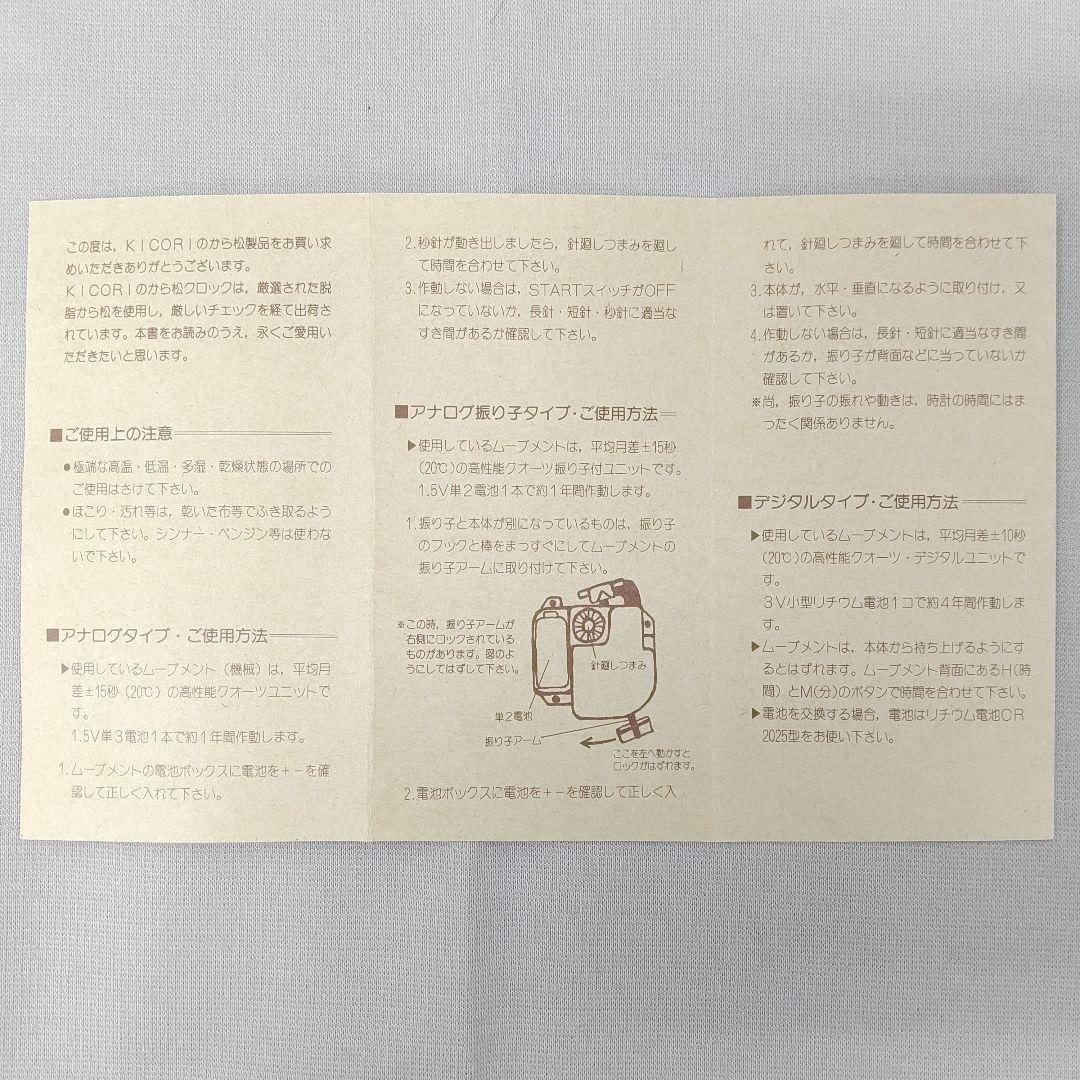 この度は，ＫＩＣＯＲＩのから松製品をお買い求
めいただきありがとうございます。
ＫＩＣＯＲＩのから松クロックは，厳選された脱
脂から松を使用し，厳しいチェックを経て出荷さ
れています。本書をお読みのうえ，永くご愛用い
ただきたいと思います。
■ご使用上の注意
●極端な高温・低温・多湿・乾燥状態の場所での
ご使用はさけて下さい。
●ほこり・汚れ等は，乾いた布等でふき取るよう
にして下さい。シンナー・ベンジン等は使わな
いで下さい。
■アナログタイプ・ご使用方法
▶使用しているムーブメント（機械）は，平均月
差±15秒（20℃）の高性能クオーツユニットで
す。
1.5V単３電池１本で約１年間作動します。
1.ムーブメントの電池ボックスに電池を＋－を確
認して正しく入れて下さい。
2.秒針が動き出しましたら，針廻しつまみを廻し
て時間を合わせて下さい。
3.作動しない場合は，STARTスイッチがOFF
になっていないか，長針・短針・秒針に適当な
すき間があるか確認して下さい。
■アナログ振り子タイプ・ご使用方法
▶使用しているムーブメントは，平均月差±15秒
（20℃）の高性能クオーツ振り子付ユニットです。
1.5V単２電池１本で約１年間作動します。
1.振り子と本体が別になっているものは，振り子
のフックと棒をまっすぐにしてムーブメントの
振り子アームに取り付けて下さい。
※この時，振り子アームが
右側にロックされている
ものがあります。図のよ
うにしてはずして下さい。
針廻しつまみ
単２電池
振り子アーム
ここを左へ動かすと
ロックがはずれます。
2.電池ボックスに電池を＋－を確認して正しく入
れて，針廻しつまみを廻して時間を合わせて下
さい。
3.本体が，水平・垂直になるように取り付け，又
は置いて下さい。
4.作動しない場合は，長針・短針に適当なすき間
があるか，振り子が背面などに当っていないか
確認して下さい。
※尚，振り子の振れや動きは，時計の時間にはま
ったく関係ありません。
■デジタルタイプ・ご使用方法
▶使用しているムーブメントは，平均月差±10秒
（20℃）の高性能クオーツ・デジタルユニットで
す。
３V小型リチウム電池１コで約４年間作動しま
す。
▶ムーブメントは，本体から持ち上げるようにす
るとはずれます。ムーブメント背面にあるH（時
間）とM（分）のボタンで時間を合わせて下さい。
▶電池を交換する場合，電池はリチウム電池CR
2025型をお使い下さい。